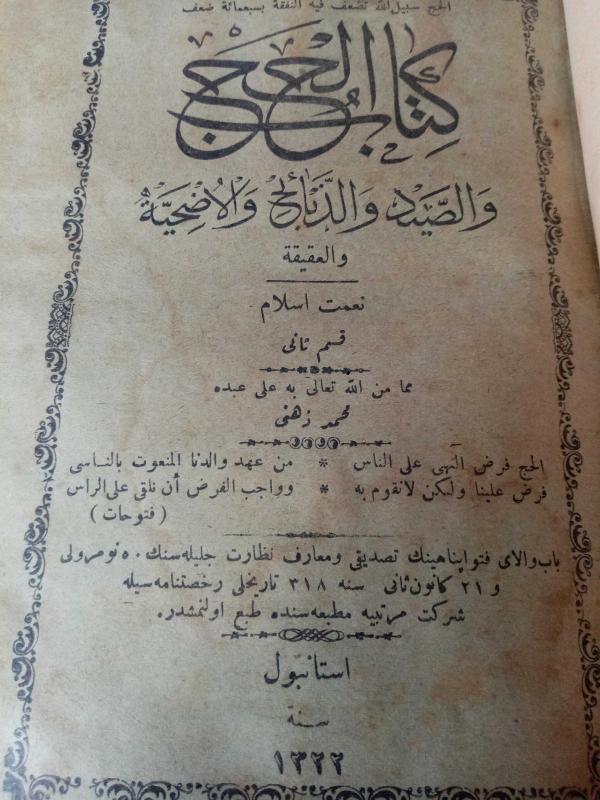 الحج سبيل الله تضعف فيه النفقة بسبعمائة ضعف
كِتَابُ الْحَجّ
وَالصَّيْد وَالذَّبَائِح وَالْأُضْحِيَّة
والعقيقة
نعمت اسلام
قسم ثانی
مما من الله تعالى به على عبده
محمد ذهنى
الحج فرض الٓهى على الناس * من عهد والدنا المنعوت بالناسى
فرض علينا ولكن لانقوم به * وواجب الفرض أن نلقى على الراس
( فتوحات )
باب والاى فتوايناهينك تصديقى ومعارف نظارت جليله سنك ٥٠ نومرولى
و ٢١ كانون ثانى سنه ٣١٨ تاريخلى رخصتنامه سيله
شركت مرتبيه مطبعه سنده طبع اولنمشدر.
استانبول
سنة
١٣٢٢